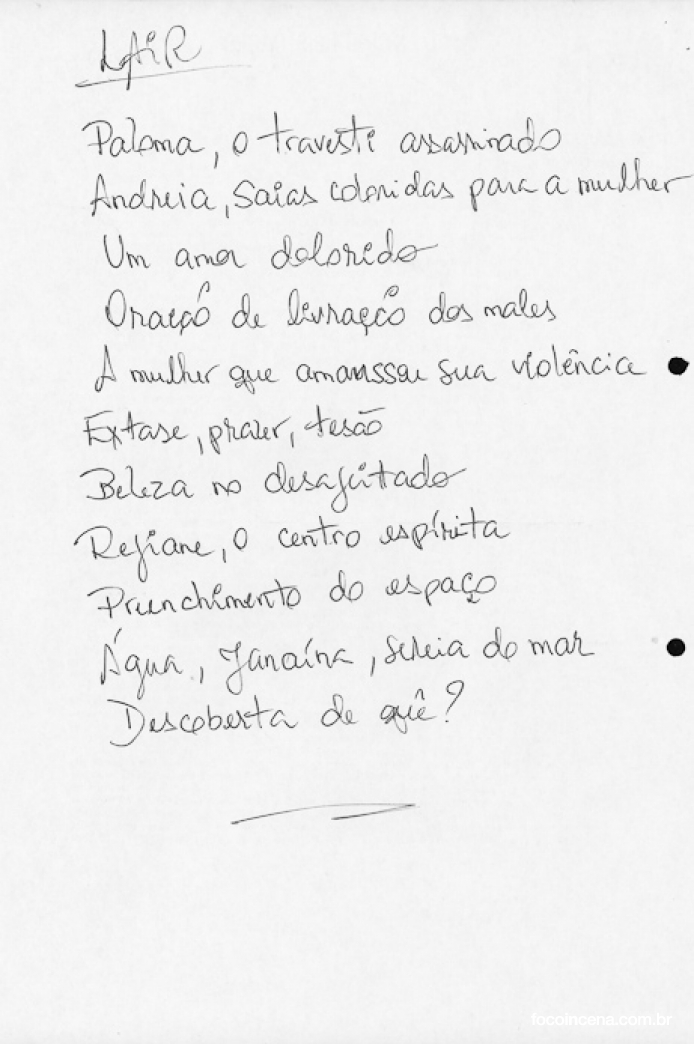 LAIR
Paloma, o travesti assassinado
Andreia, saias coloridas para a mulher
Um amor dolorido
Oração de livração dos males
A mulher que amanssou sua violência
Extase, prazer, tesão
Beleza no desajeitado
Regiane, o centro espírita
Preenchimento do espaço
Água, Janaína, sereia do mar
Descoberta de quê?
focoincena.com.br